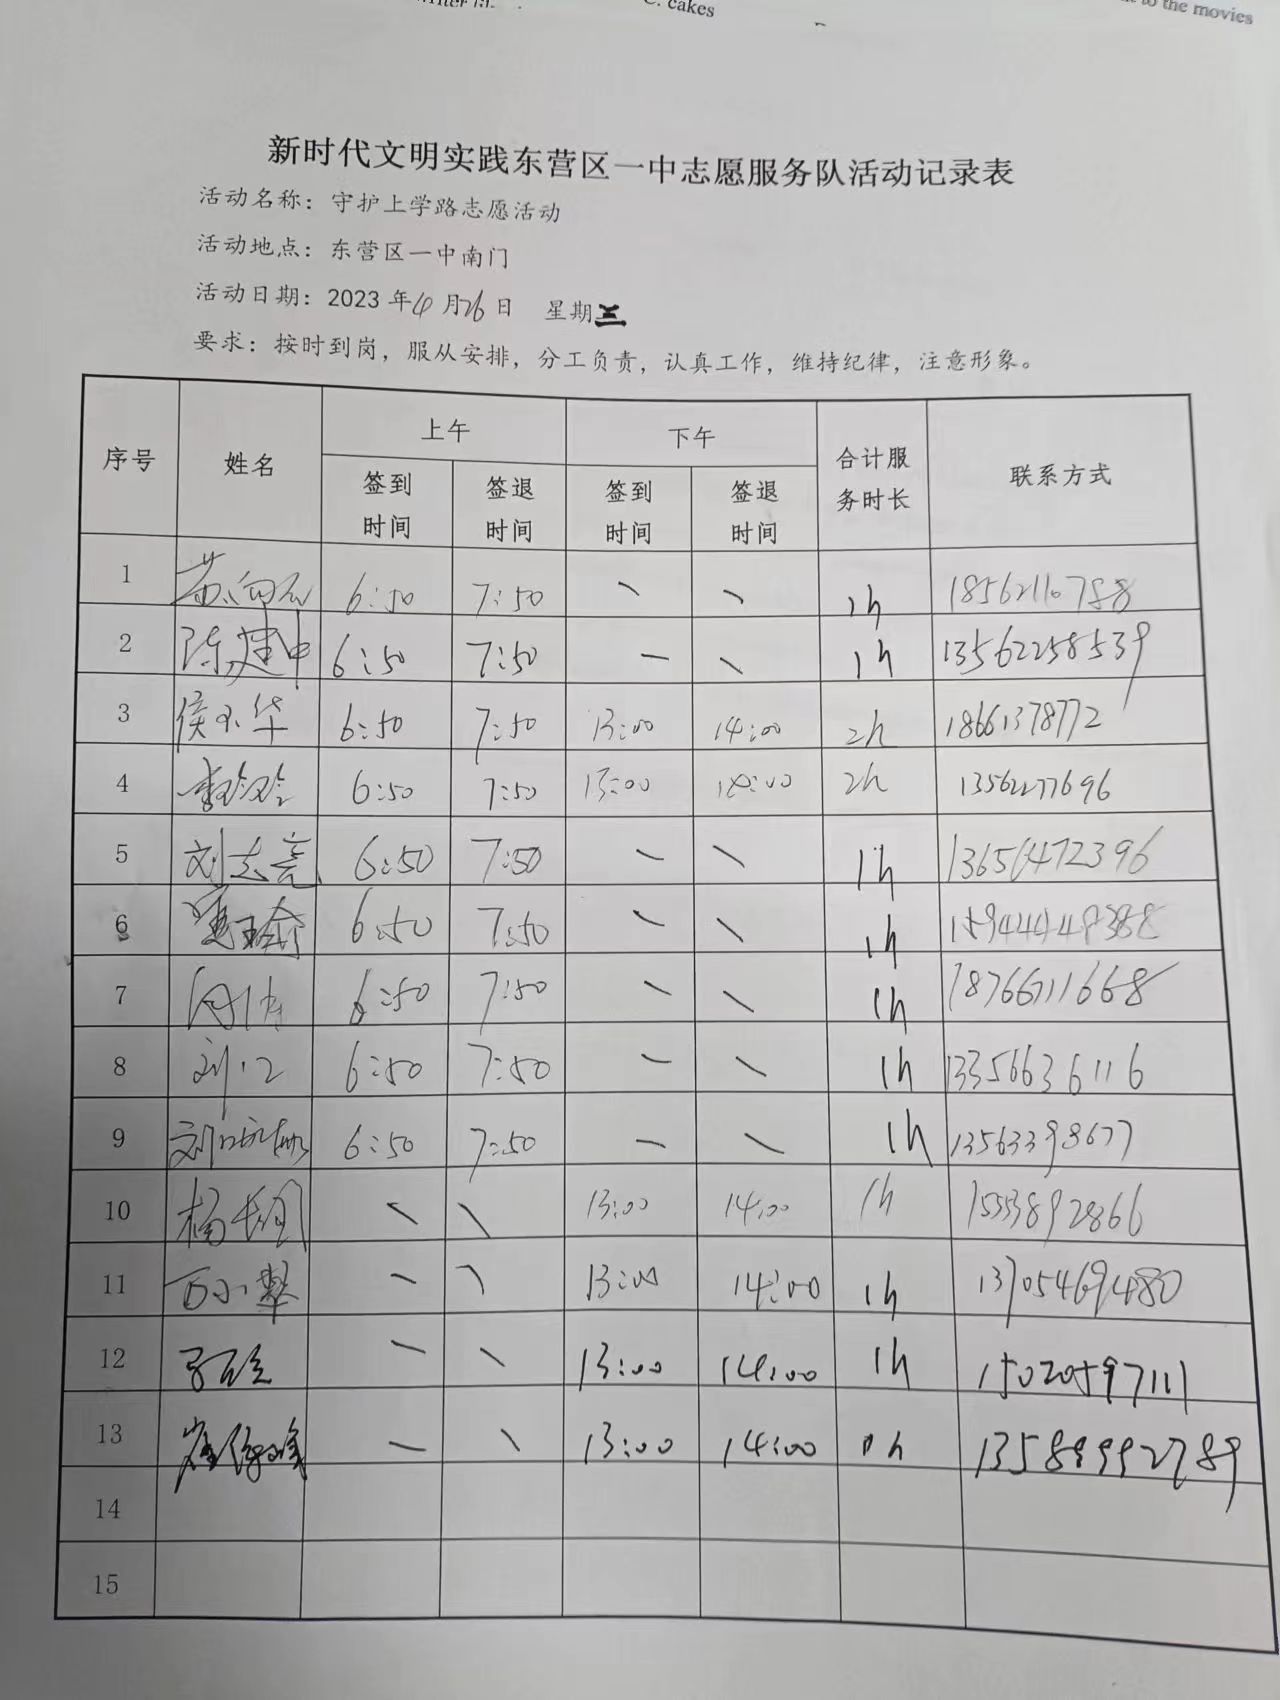 C. cakes
to the movies
新时代文明实践东营区一中志愿服务队活动记录表
活动名称：守护上学路志愿活动
活动地点：东营区一中南门
活动日期：2023年4月26日 星期三
要求：按时到岗，服从安排，分工负责，认真工作，维持纪律，注意形象。
序号 姓名 上午 下午 合计服务时长 联系方式
签到时间 签退时间 签到时间 签退时间
1 6:50 7:50 1h
2 陈建中 6:50 7:50 — 1h 13562258539
3 6:50 7:50 13:00 14:00 2h 18661378772
4 6:50 7:50 13:00 14:00 2h 13562277696
5 刘志亮 6:50 7:50 1h 13656472396
6 6:50 7:50 1h
7 6:50 7:50 1h 18766711668
8 6:50 7:50 1h 13356636116
9 6:50 7:50 — 1h 13563398677
10 13:00 14:00 1h 15338892866
11 13:00 14:00 1h 13705469480
12 13:00 14:00 1h 15020597111
13 — 13:00 14:00 1h 13589992789
14
15